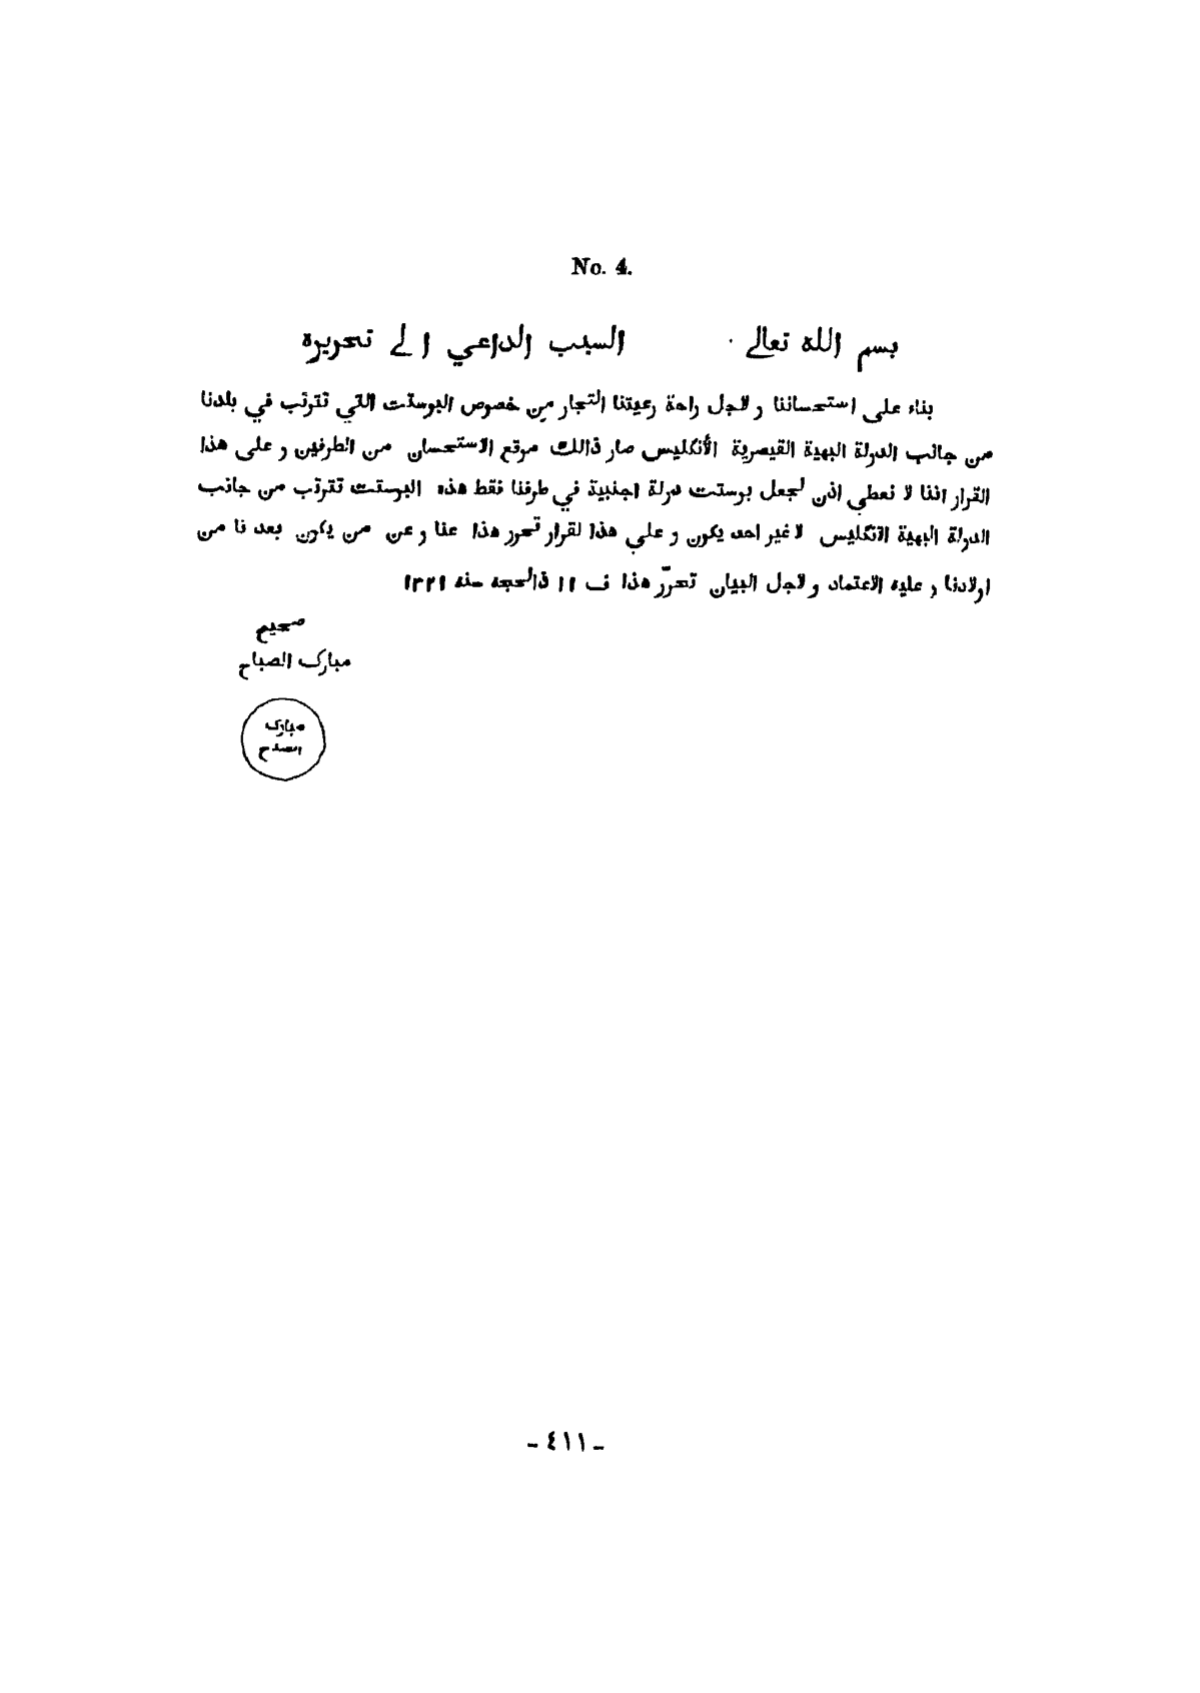 No. 4.
بسم الله تعالى السبب الداعي الى تحريره
بناء على استحساننا ولاجل راحة رعيتنا التجار من خصوص البوستت التي تترتب في بلدنا
من جانب الدولة البهية القيصرية الأنكليس صار ذالك موقع الاستحسان من الطرفين وعلى هذا
القرار اننا لا نعطي اذن لجعل بوستت دولة اجنبية في طرفنا فقط هذه البوستت تترتب من جانب
الدولة البهية الانكليس لا غير احد يكون وعلى هذا لقرار تحرر هذا عنا وعن من يكون بعد نا من
اولادنا وعليه الاعتماد ولاجل البيان تحرّر هذا ف ١١ ذالحجه سنه ١٣٢١
صحيح
مبارك الصباح
مبارك
الصباح
- ٤١١ -